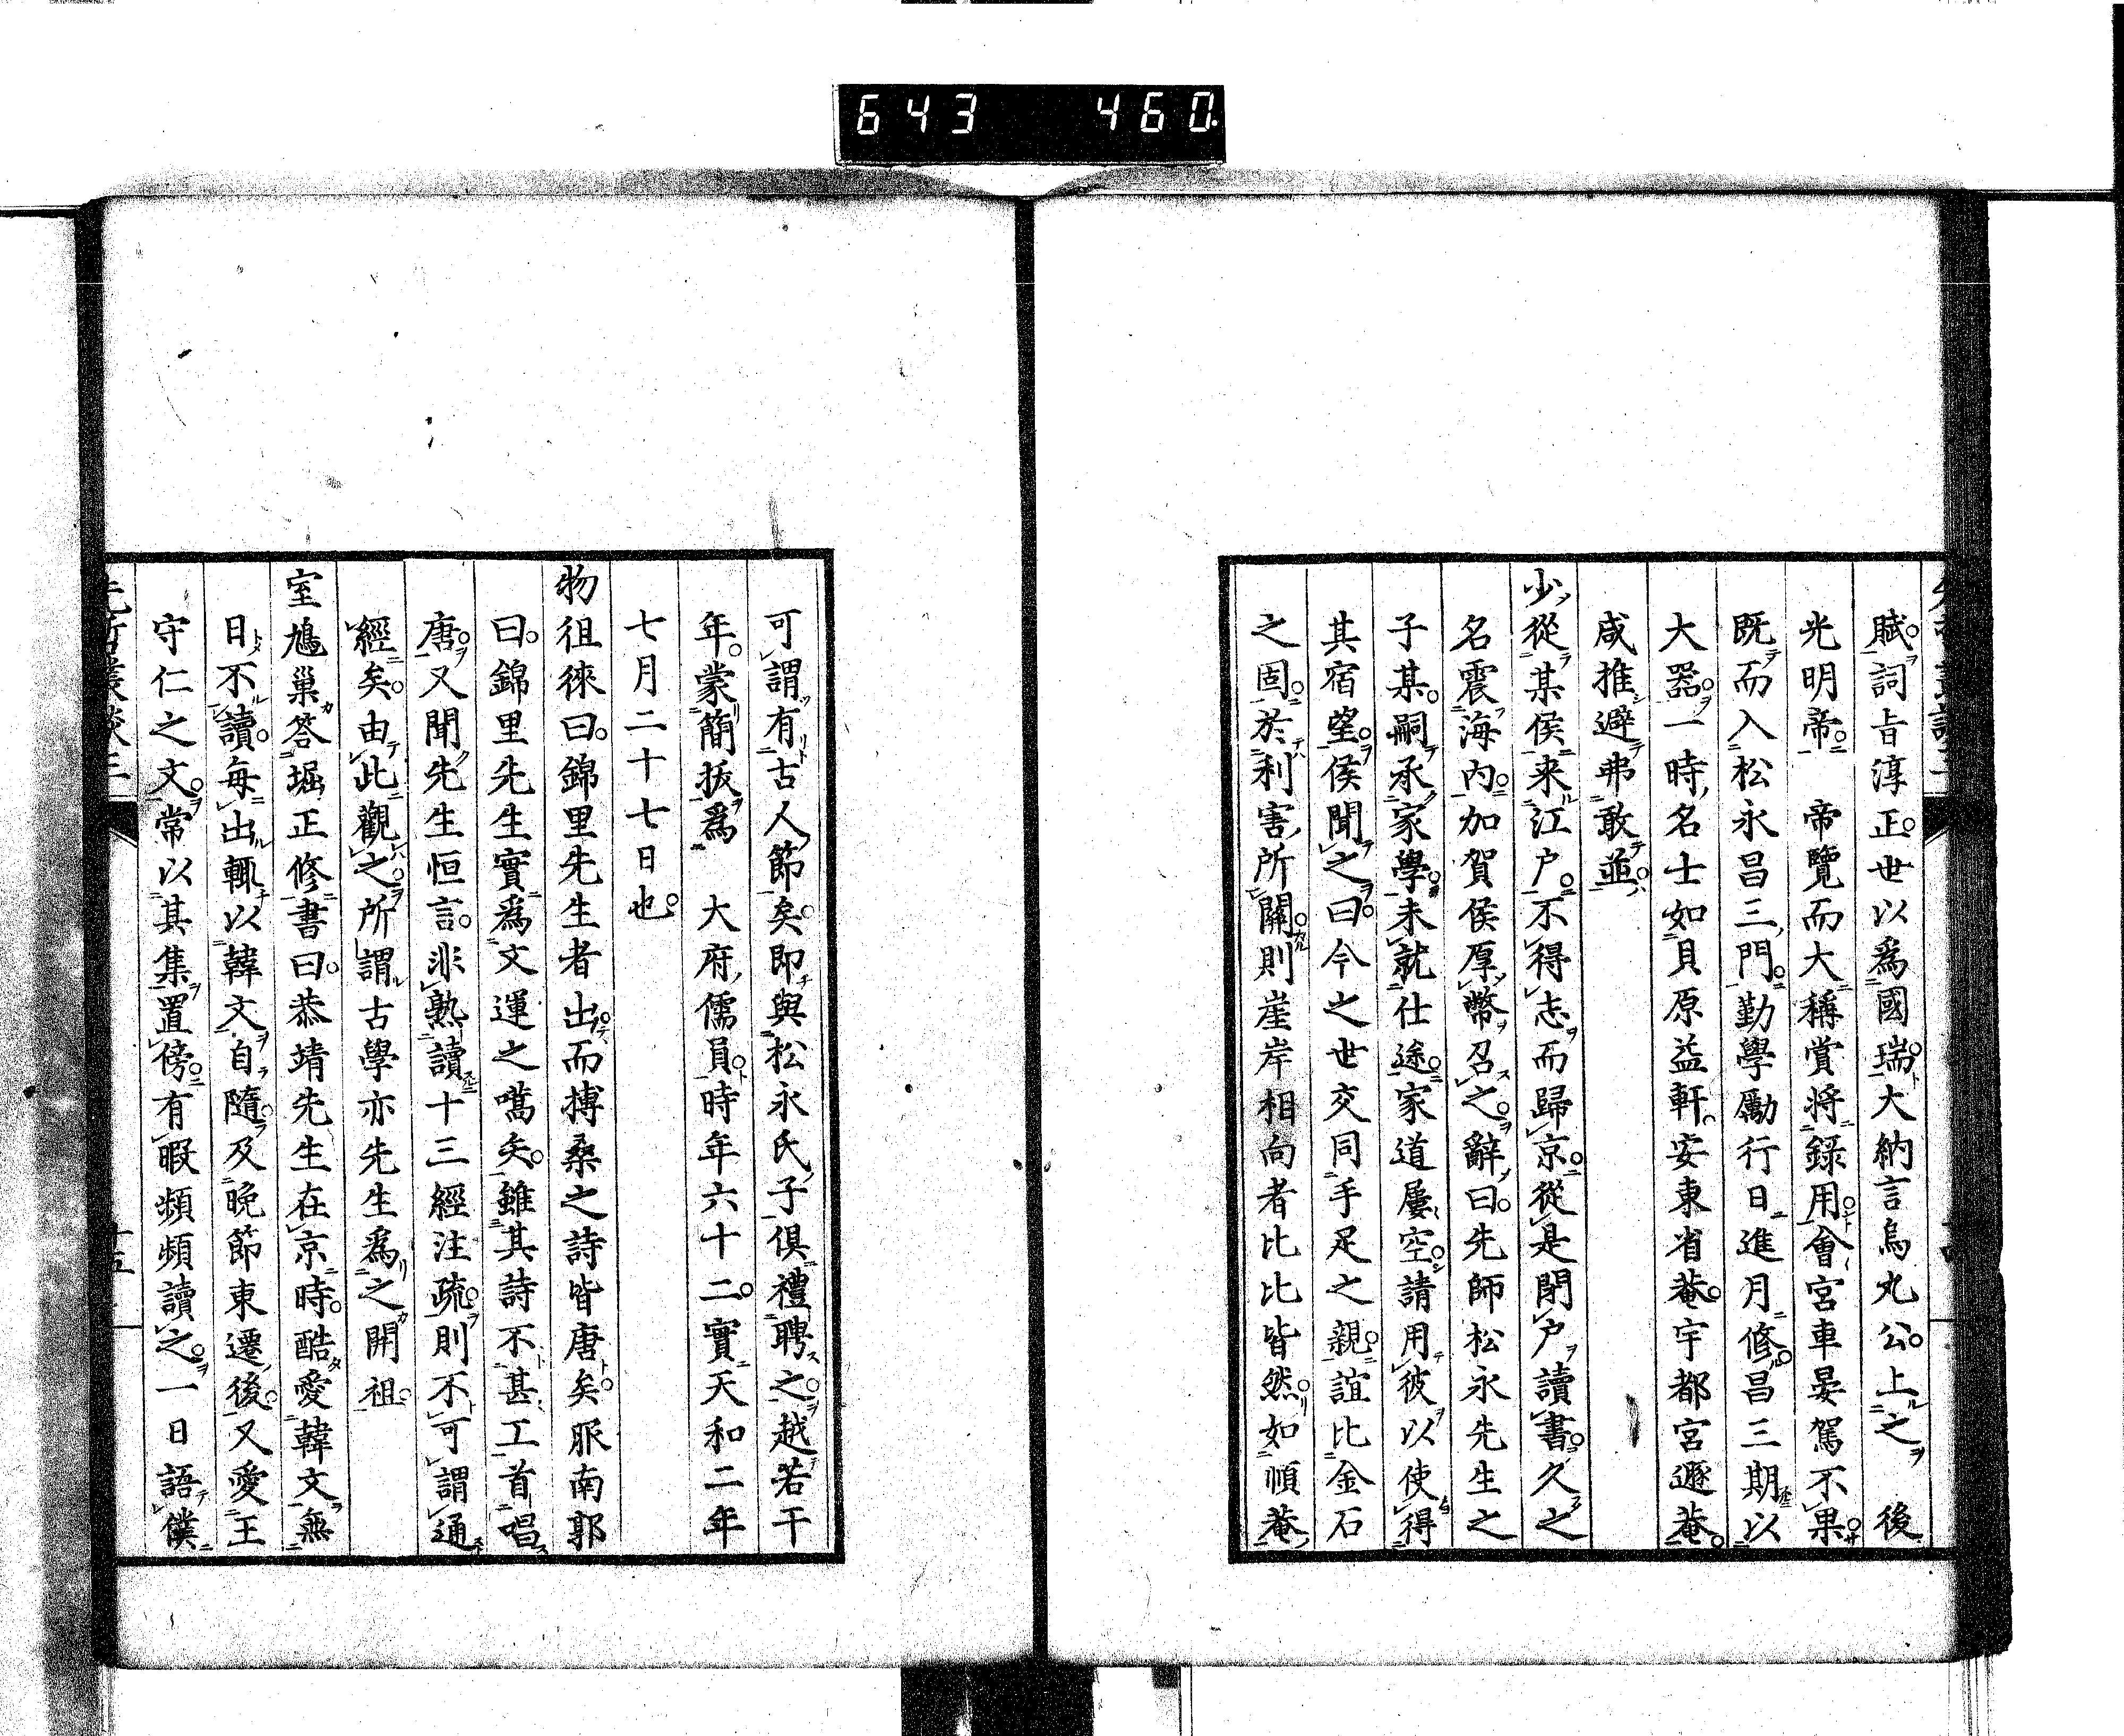 643 460.
賦詞旨淳正世以爲國瑞大納言烏丸公上之 後
光明帝 帝覽而大稱賞將錄用會宮車晏駕不果
既而入松永昌三門勤學勵行日進月修昌三期以
大器一時名士如貝原益軒安東省菴宇都宮遯菴
咸推避弗敢並
少從某侯來江戶不得志而歸京從是閉戶讀書久之
名震海內加賀侯厚幣召之辭曰先師松永先生之
子某嗣承家學未就仕途家道屢空請用彼以使得
其宿望侯聞之曰今之世交同手足之親誼比金石
之固於利害所關則崖岸相向者比比皆然如順菴
可謂有古人節矣即與松永氏子俱禮聘之越若干
年蒙簡拔爲 大府儒員時年六十二實天和二年
七月二十七日也
物徂徠曰錦里先生者出而搏桑之詩皆唐矣服南郭
曰錦里先生實爲文運之嚆矣雖其詩不甚工首唱
唐又聞先生恒言非熟讀十三經注疏則不可謂通
經矣由此觀之所謂古學亦先生爲之開祖
室鳩巢答堀正修書曰恭靖先生在京時酷愛韓文無
日不讀每出輒以韓文自隨及晚節東遷後又愛王
守仁之文常以其集置傍有暇頻頻讀之一日語僕
先哲叢談三
十五